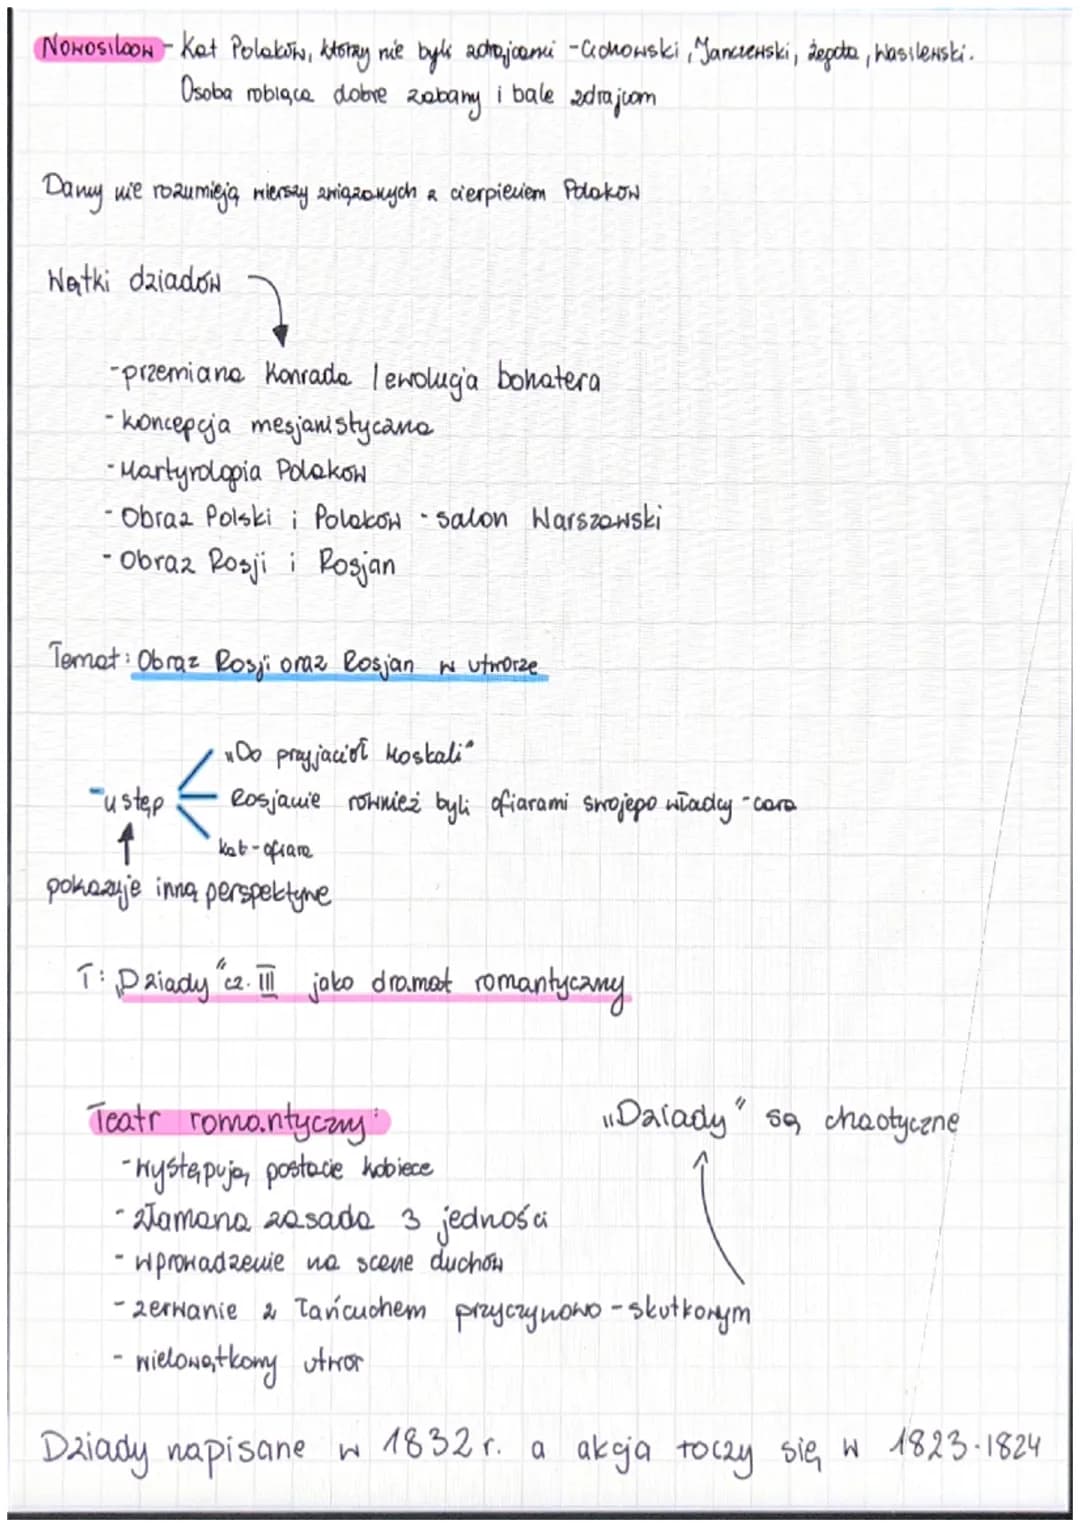 Nowosilcow - Kat Polaków, którzy nie byli zdrajcami - Cichowski, Janczewski, Żegota, Wasilewski.
Osoba robiąca dobre zabawy i bale zdrajcom
Damy nie rozumieją wierszy związanych z cierpieniem Polaków
Wątki dziadów
- przemiana Konrada / ewolucja bohatera
- koncepcja mesjanistyczna
- Martyrologia Polaków
- Obraz Polski i Polaków - salon Warszawski
- Obraz Rosji i Rosjan
Temat: Obraz Rosji oraz Rosjan w utworze
„Do przyjaciół Moskali"
- ustęp
Rosjanie również byli ofiarami swojego władcy - cara
kat - ofiara
pokazuje inną perspektywę
T: „Dziady" cz. III jako dramat romantyczny
Teatr romantyczny:
„Dziady" są chaotyczne
- występują postacie kobiece
- złamana zasada 3 jedności
- wprowadzenie na scene duchów
- zerwanie z łańcuchem przyczynowo - skutkowym
- wielowątkowy utwór
Dziady napisane w 1832 r. a akcja toczy się w 1823-1824